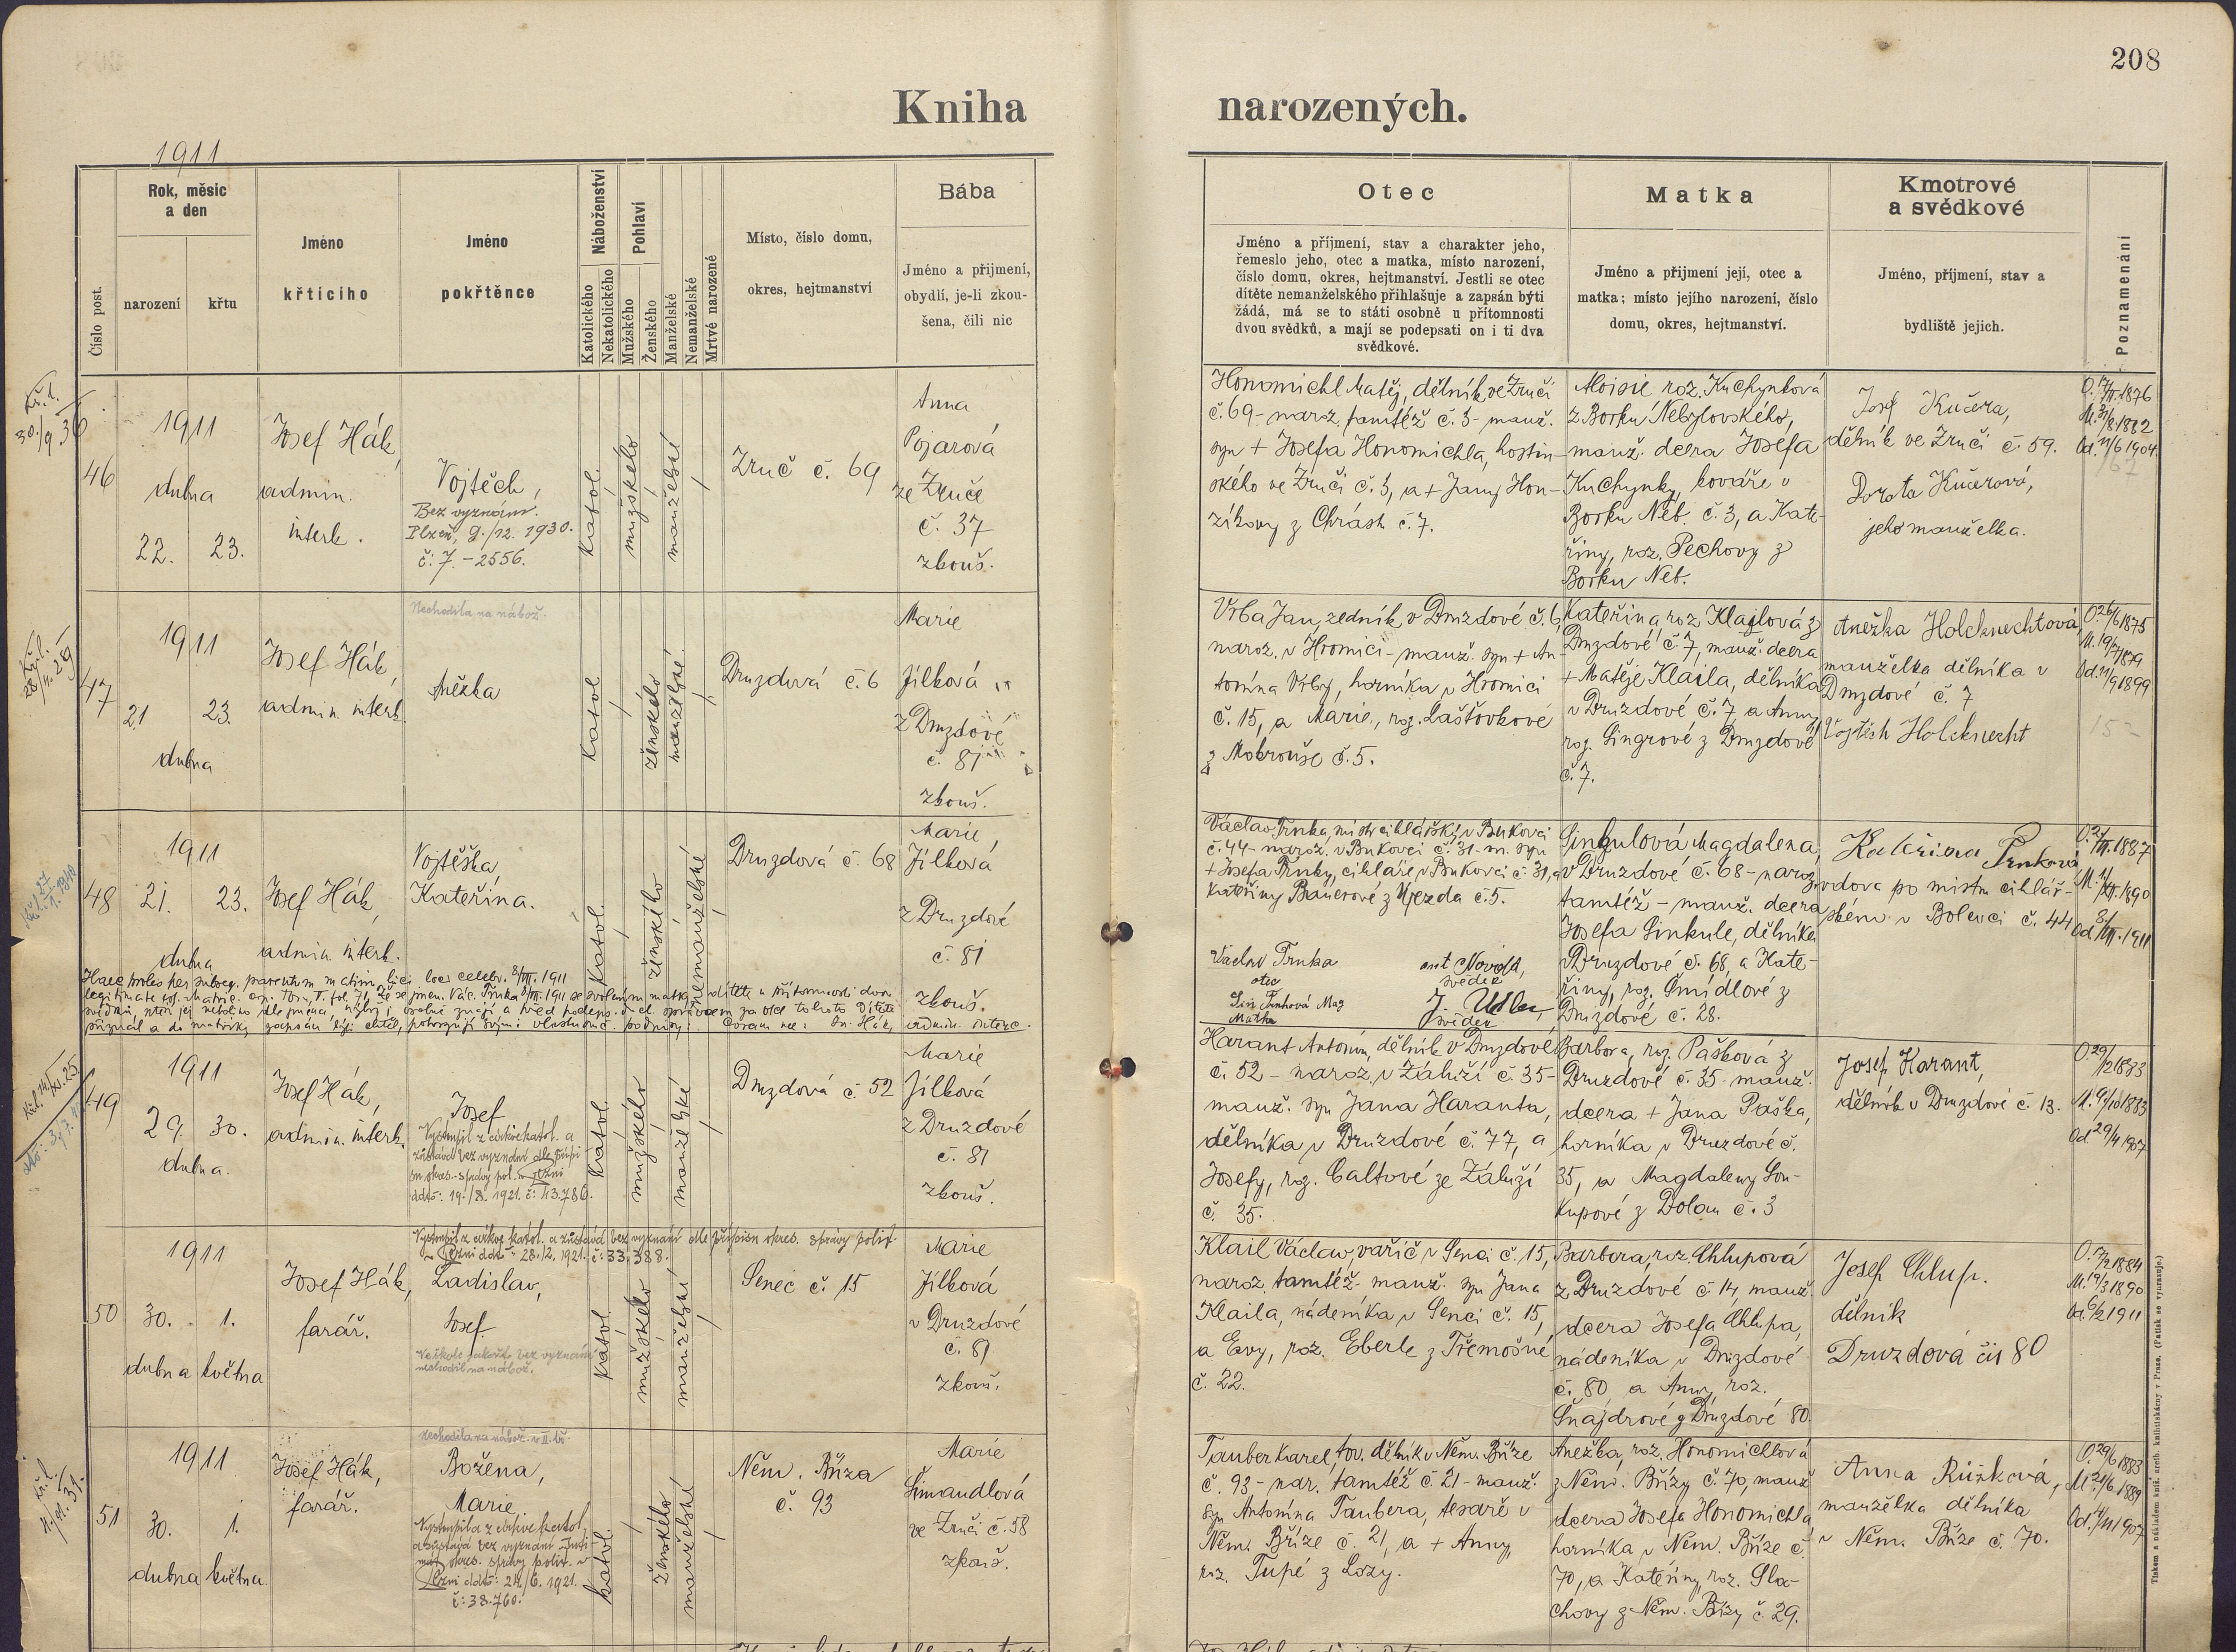 208
Kniha narozených.
1911
Číslo post.
Rok, měsíc
a den
narození
křtu
Jméno
křtícího
Jméno
pokřtěnce
Náboženství
Katolického
Nekatolického
Pohlaví
Mužského
Ženského
Manželské
Nemanželské
Mrtvé narozené
Místo, číslo domu,
okres, hejtmanství
Bába
Jméno a příjmení,
obydlí, je-li zkou-
šena, čili nic
Otec
Jméno a příjmení, stav a charakter jeho,
řemeslo jeho, otec a matka, místo narození,
číslo domu, okres, hejtmanství. Jestli se otec
dítěte nemanželského přihlašuje a zapsán býti
žádá, má se to státi osobně u přítomnosti
dvou svědků, a mají se podepsati on i ti dva
svědkové.
Matka
Jméno a příjmení její, otec a
matka; místo jejího narození, číslo
domu, okres, hejtmanství.
Kmotrové
a svědkové
Jméno, příjmení, stav a
bydliště jejich.
Poznamenání
46
1911
dubna
22. 23.
Josef Hák,
admin.
interk.
Vojtěch,
Bez vyznám.
Plzeň, 9./12. 1930.
č. 7.-2556.
katol.
mužského
manželské
Zruč č. 69
Anna
Pojarová
ze Zruče
č. 37
zkouš.
Honomichl Matěj, dělník ve Zruči
č. 69 - naroz. tamtéž č. 3 - manž.
syn + Josefa Honomichla, hostin-
ského ve Zruči č. 3, a + Jany Hon-
zíkovy z Chrásti č. 7.
Aloisie roz. Kuchynková
z Borku Nebylovského,
manž. dcera Josefa
Kuchynky, kováře v
Borku Neb. č. 3, a Kate-
řiny, roz. Pechovy z
Borku Neb.
Josef Kučera,
dělník ve Zruči č. 59.
Dorota Kučerová,
jeho manželka.
47
1911
21 23.
dubna
Josef Hák,
admin. interk.
Nechodila na nábož.
Anežka
katol
ženského
manželské
Druzdová č. 6
Marie
Jílková
z Druzdové
č. 81
zkouš.
Vrba Jan, zedník v Druzdové č. 6,
naroz. v Hromici - manž. syn + An-
tonína Vrby, horníka v Hromici
č. 15, a Marie, roz. Laštovkové
z Mokrouše č. 5.
Kateřina, roz. Klailová z
Druzdové č. 7, manž. dcera
+ Matěje Klaila, dělníka
v Druzdové č. 7 a Anny
roz. Singrové z Druzdové
č. 7.
Anežka Holcknechtová,
manželka dělníka v
Druzdové č. 7
Vojtěch Holcknecht
48
1911
21. 23.
dubna
Josef Hák,
admin interk.
Vojtěška,
Kateřina.
katol.
ženského
nemanželské
Druzdová č. 68
Marie,
Jílková
z Druzdové
č. 81
zkouš.
Václav Trnka, mistr cihlářský v Bukovci
č. 44 - naroz. v Bukovci č. 31 - m. syn
+ Josefa Trnky, cihláře v Bukovci č. 31, a
Kateřiny Bauerové z Újezda č. 5.
Václav Trnka
otec
Matka
Ant Novotl,
svědek
svědek
Sinkulová Magdalena,
v Druzdové č. 68 - naroz.
tamtéž - manž. dcera
Josefa Sinkule, dělníka
v Druzdové č. 68, a Kate-
řiny, roz. Šmídlové z
Druzdové č. 28.
Kateřina Trnková
vdova po mistru cihlář-
ském v Bolevci č. 44
49
1911
29. 30.
dubna.
Josef Hák,
admin. interk.
Josef
Vystoupil z církve katol. a
zůstává bez vyznání dle přípi-
su okres. správy pol. v Plzni
ddto: 19./8. 1921. č: 43.786.
katol.
mužského
manželské
Druzdová č. 52
Marie
Jílková
z Druzdové
č. 81
zkouš.
Harant Antonín, dělník v Druzdové
č. 52 - naroz. v Záluží č. 35 -
manž. syn Jana Haranta,
dělníka v Druzdové č. 77, a
Josefy, roz. Caltové ze Záluží
č. 35.
Barbora, roz. Pašková z
Druzdové č. 35 - manž.
dcera + Jana Paška,
horníka v Druzdové č.
35, a Magdaleny Sou-
kupové z Dolan č. 3
Josef Harant,
dělník v Druzdové č. 13.
50
1911
30. 1.
dubna května
Josef Hák,
farář.
Vystoupil z církve katol. a zůstává bez vyznání dle přípisu okres. správy polit.
v Plzni ddto: 28./2. 1921. č: 33.388.
Ladislav,
Josef
katol.
mužského
manželské
Senec č. 15
Marie
Jílková
v Druzdové
č. 81
zkouš.
Klail Václav, vařič v Senci č. 15,
naroz. tamtéž - manž. syn Jana
Klaila, nádeníka v Senci č. 15,
a Evy, roz. Eberle z Třemošné
č. 22.
Barbora, roz. Chlupová
z Druzdové č. 14, manž.
dcera Josefa Chlupa,
nádeníka v Druzdové
č. 80 a Anny, roz.
Šnajdrové z Druzdové 80.
Josef Chlup.
dělník
Druzdová čís 80
51
1911
30. 1.
dubna května
Josef Hák,
farář.
Božena,
Marie
Vystoupila z církve katol.
a zůstává bez vyznání
okres. správy polit. v
Plzni ddto: 24./6. 1921.
č: 38.760.
katol.
ženského
manželské
Něm. Bříza
č. 93
Marie
Šimandlová
ve Zruči č. 58
zkouš.
Tauber Karel, tov. dělník v Něm. Bříze
č. 93 - nar. tamtéž č. 21 - manž.
syn Antonína Taubera, tesaře v
Něm. Bříze č. 21, a + Anny,
roz. Tupé z Lozy.
Anežka, roz. Honomichlová
z Něm. Břízy č. 70, manž
dcera Josefa Honomichla
horníka v Něm. Bříze č.
70, a Kateřiny, roz. Gla-
chovy z Něm. Břízy č. 29.
Anna Růžková,
manželka dělníka
v Něm. Bříze č. 70.